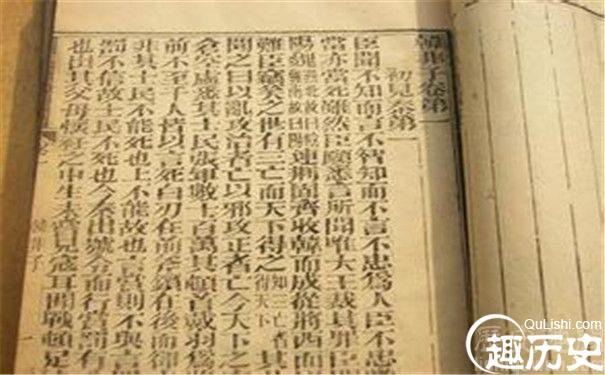 韓非子卷第一
初見秦第一
臣聞不知而言不智知而不言不忠爲人臣不忠
當亦當死雖然臣願悉言所聞唯大王裁其罪臣
陽魏連荆固齊收韓而成從將西面
難臣竊笑之世有三亡而天下得之知三亡者得天下其
聞之曰以亂攻治者亡以邪攻正者亡今天下
倉空虛悉其士民張軍數十百萬其頓首戴羽爲
前不至千人皆以言死白刃在前斧鑕在後而
非其士民不能死也上不能故也言賞則不與言
罰不信故士民不死也今秦出號令而行賞罰有
也出其父母懷衽之中生未嘗見寇耳聞戰頓足
韓非子
QuLishi.com
趣历史